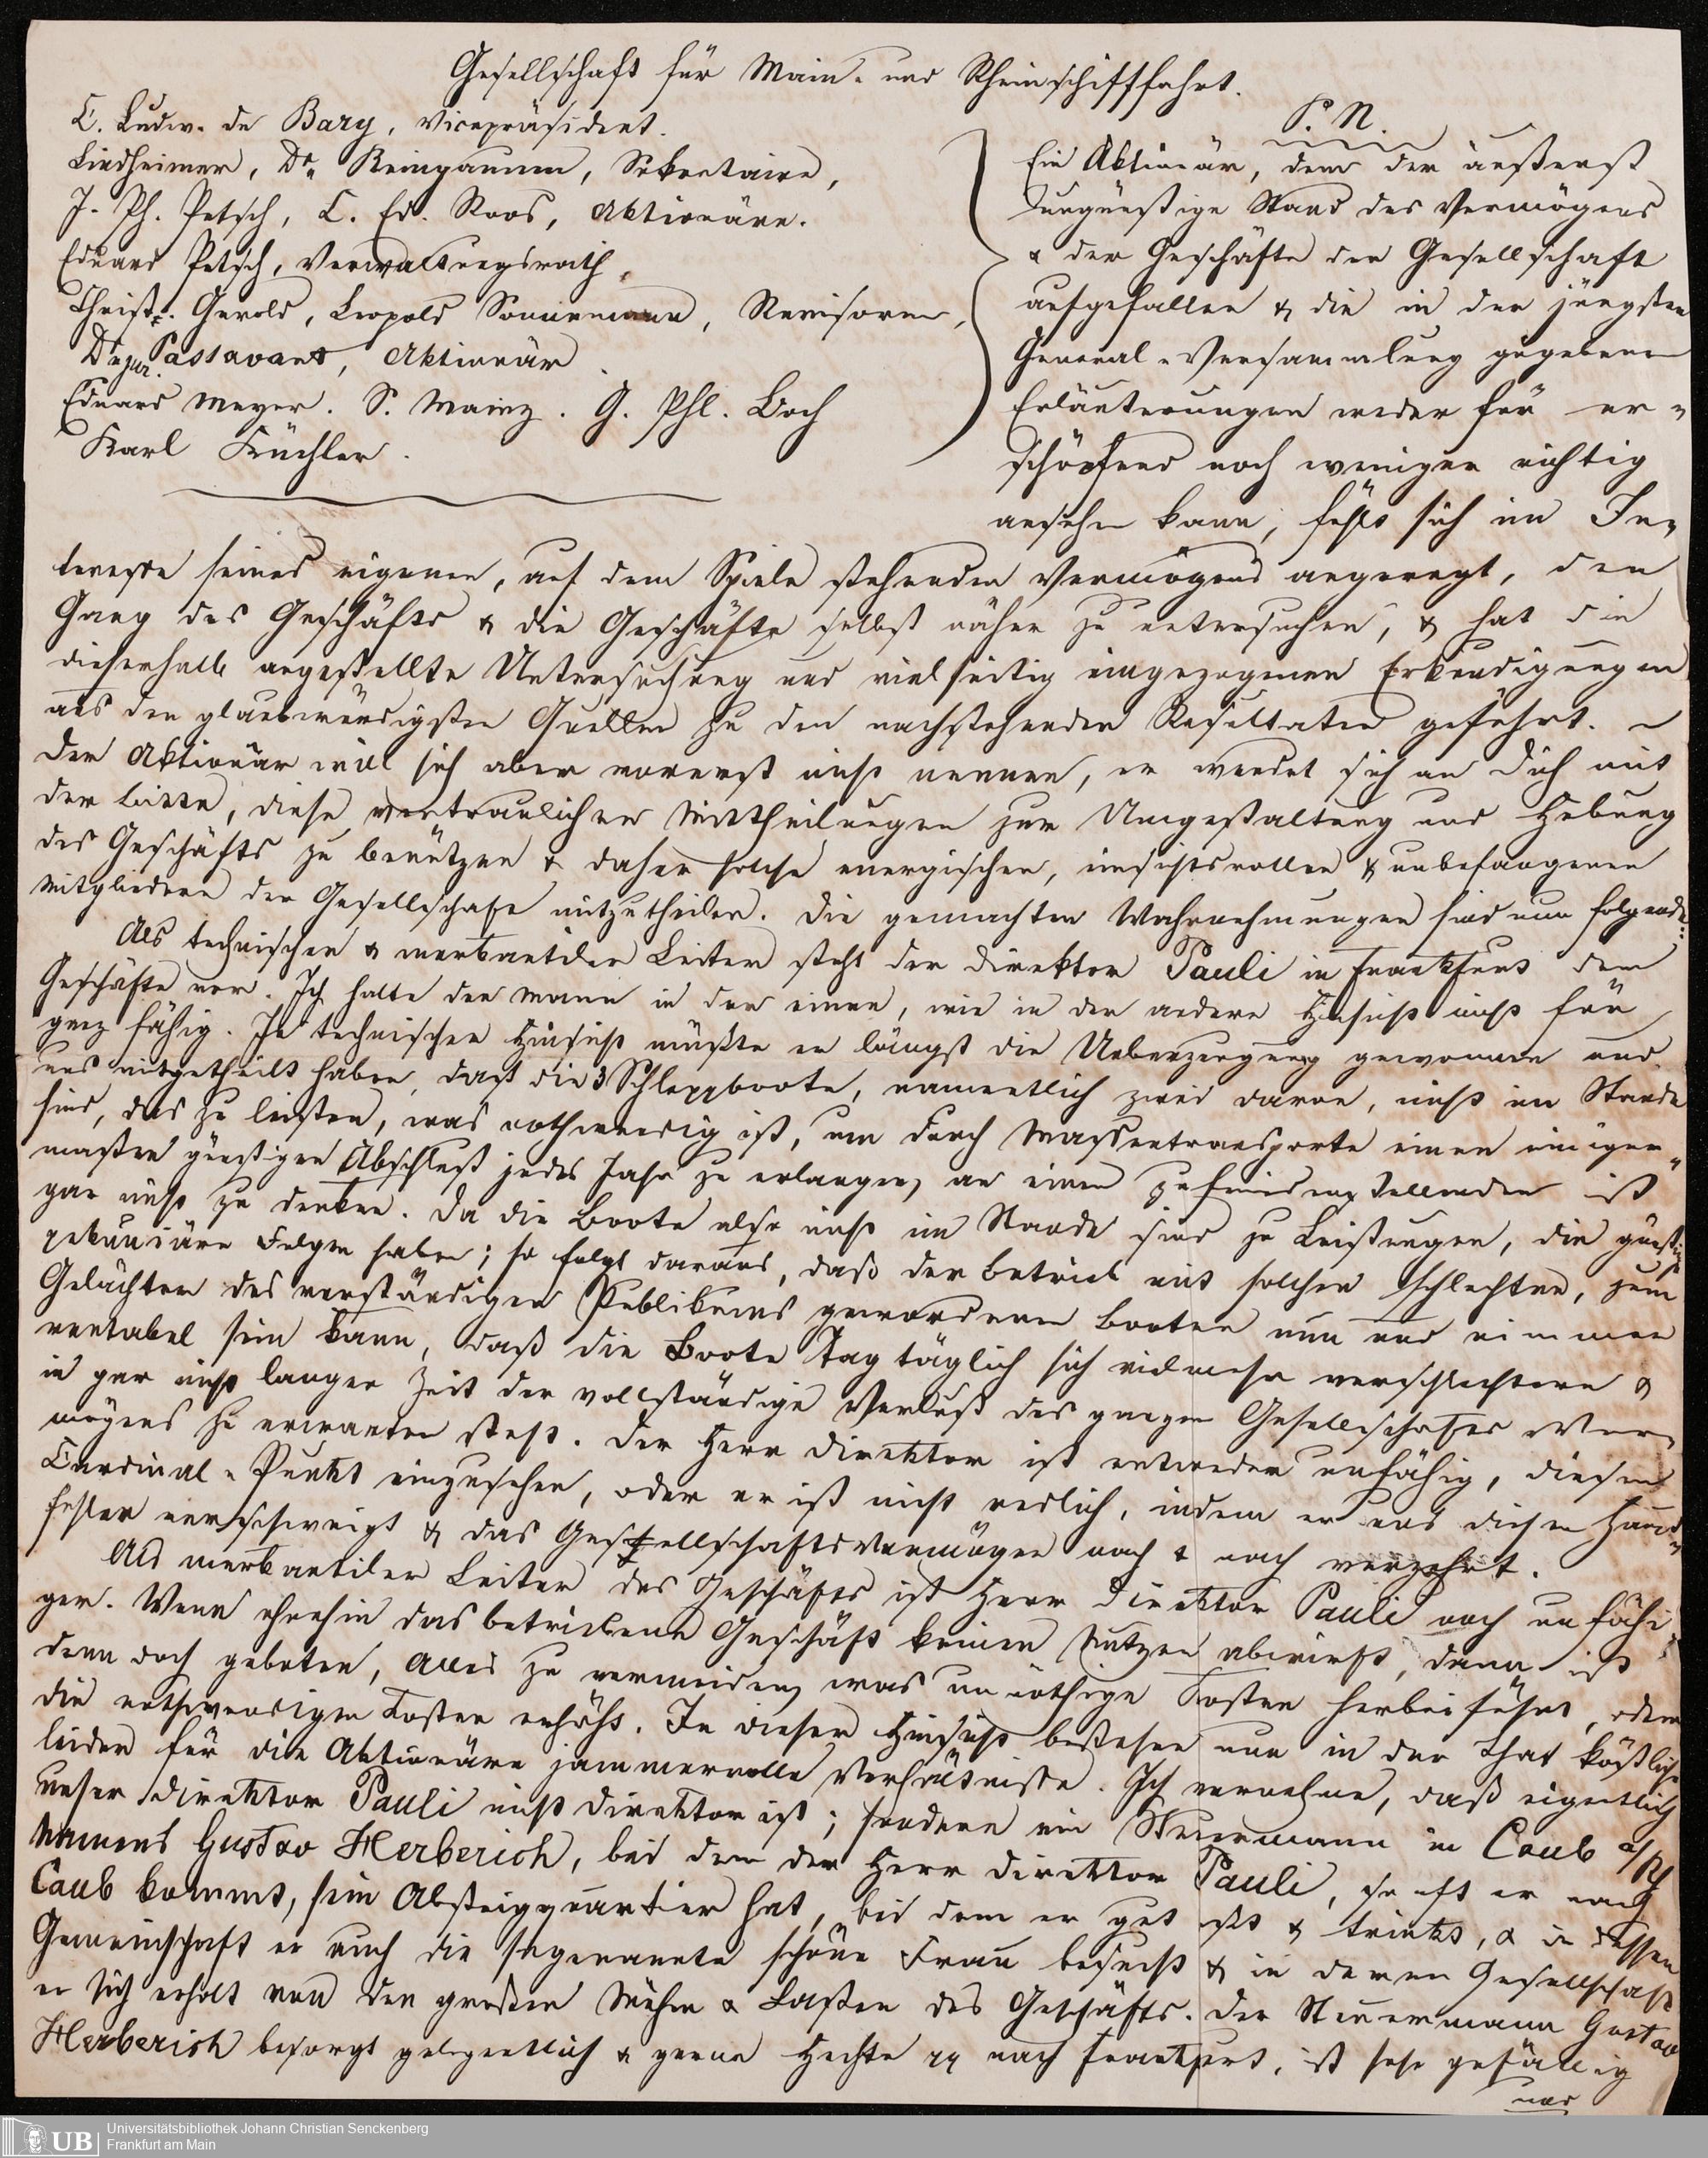 Gesellschaft für Main- und Rheinschifffahrt.
C. Ludw. de Bary, Vicepräsident.
Lindheimer, Dr. Reinganum, Sekretaire,
J. Ph. Petsch, C. Ed. Roos, Aktionäre.
Eduard Petsch, Verwaltungsrath,
Christ. Gerold, Leopold Sonnemann, Revisoren,
Dr jur. Passavant, Aktionär.
Eduard Meyer. S. Mainz. G. Phl. Loch
Karl Küchler.
P. N.
Ein Aktionär, dem der äußerst
ungünstige Stand des Vermögens
& der Geschäfte der Gesellschaft
aufgefallen & die in der jüngsten
General-Versammlung gegebenen
Erläuterungen weder für er-
schöpfend noch weniger richtig
ansehen kann, fühlt sich im In-
teresse seines eigenen, auf dem Spiele stehenden Vermögens angeregt, den
Gang des Geschäfts & die Geschäfte selbst näher zu untersuchen, & hat die
dieserhalb angestellte Untersuchung und vielseitig eingezogenen Erkundigungen
aus den glaubwürdigsten Quellen zu den nachstehenden Resultaten geführt. –
Der Aktionär will sich aber vorerst nicht nennen, er wendet sich an Dich mit
der Bitte, diese vertraulichen Mittheilungen zur Umgestaltung und Hebung
des Geschäfts zu benützen & daher solche energischen, einsichtsvollen & unbefangenen
Mitgliedern der Gesellschaft mitzutheilen. Die gemachten Wahrnehmungen sind nun folgende:
Als technischer & merkantiler Leiter steht der Direktor Pauli in Frankfurt dem
Geschäfte vor. Ich halte den Mann in der einen, wie in der andern Hinsicht nicht für
ganz fähig. In technischer Hinsicht müßte er längst die Ueberzeugung gewonnen und
uns mitgetheilt haben, daß die 3 Schleppboote, namentlich zwei davon, nicht im Stande
sind, das zu leisten, was nothwendig ist, um durch Massentransporte einen einiger-
maßen günstigen Abschluß jedes Jahr zu erlangen, an einen zufriedenstellenden ist
gar nicht zu denken. Da die Boote also nicht im Stande sind zu Leistungen, die günstige
pekuniäre Folgen haben; so folgt daraus, daß der Betrieb mit solchen schlechten, zum
Gelächter des verständigen Publikums gewordenen Booten nun und nimmer
rentabel sein kann, daß die Boote Tag täglich sich vielmehr verschlechtern &
in gar nicht langer Zeit der vollständige Verlust des ganzen Gesellschafts Ver-
mögens zu erwarten steht. Der Herr Direktor ist entweder unfähig, diesen
Cardinal-Punkt einzusehen, oder er ist nicht redlich, indem er uns diesen Haupt-
fehler verschweigt & das Gesellschaftsvermögen nach & nach verzehrt.
Als merkantiler Leiter des Geschäfts ist Herr Direktor Pauli noch unfähi-
ger. Wenn ohnehin das betriebene Geschäft keinen Nutzen abwirft, dann ist
denn doch geboten, Alles zu vermeiden, was unnöthige Kosten herbeiführt, oder
die nothwendigen Kosten erhöht. In dieser Hinsicht bestehen nun in der That köstliche
leider für die Aktionäre jammervolle Verhältnisse. Ich vernehme, daß eigentlich
unser Direktor Pauli nicht Direktor ist; sondern ein Steuermann in Caub a/Rh
Namens Gustav Herberich, bei dem der Herr Direktor Pauli, so oft er nach
Caub kommt, sein Absteigquartier hat, bei dem er gut ißt & trinkt, & in dessen
Gemeinschaft er auch die sogenannte schöne Frau besucht & in deren Gesellschaft
er sich erholt von den großen Mühen & Lasten des Geschäfts. Der Steuermann Gustav
Herberich besorgt gelegentlich & gerne Hechte pp nach Frankfurt, ist sehr gefällig
und
Universitätsbibliothek Johann Christian Senckenberg
Frankfurt am Main
UB